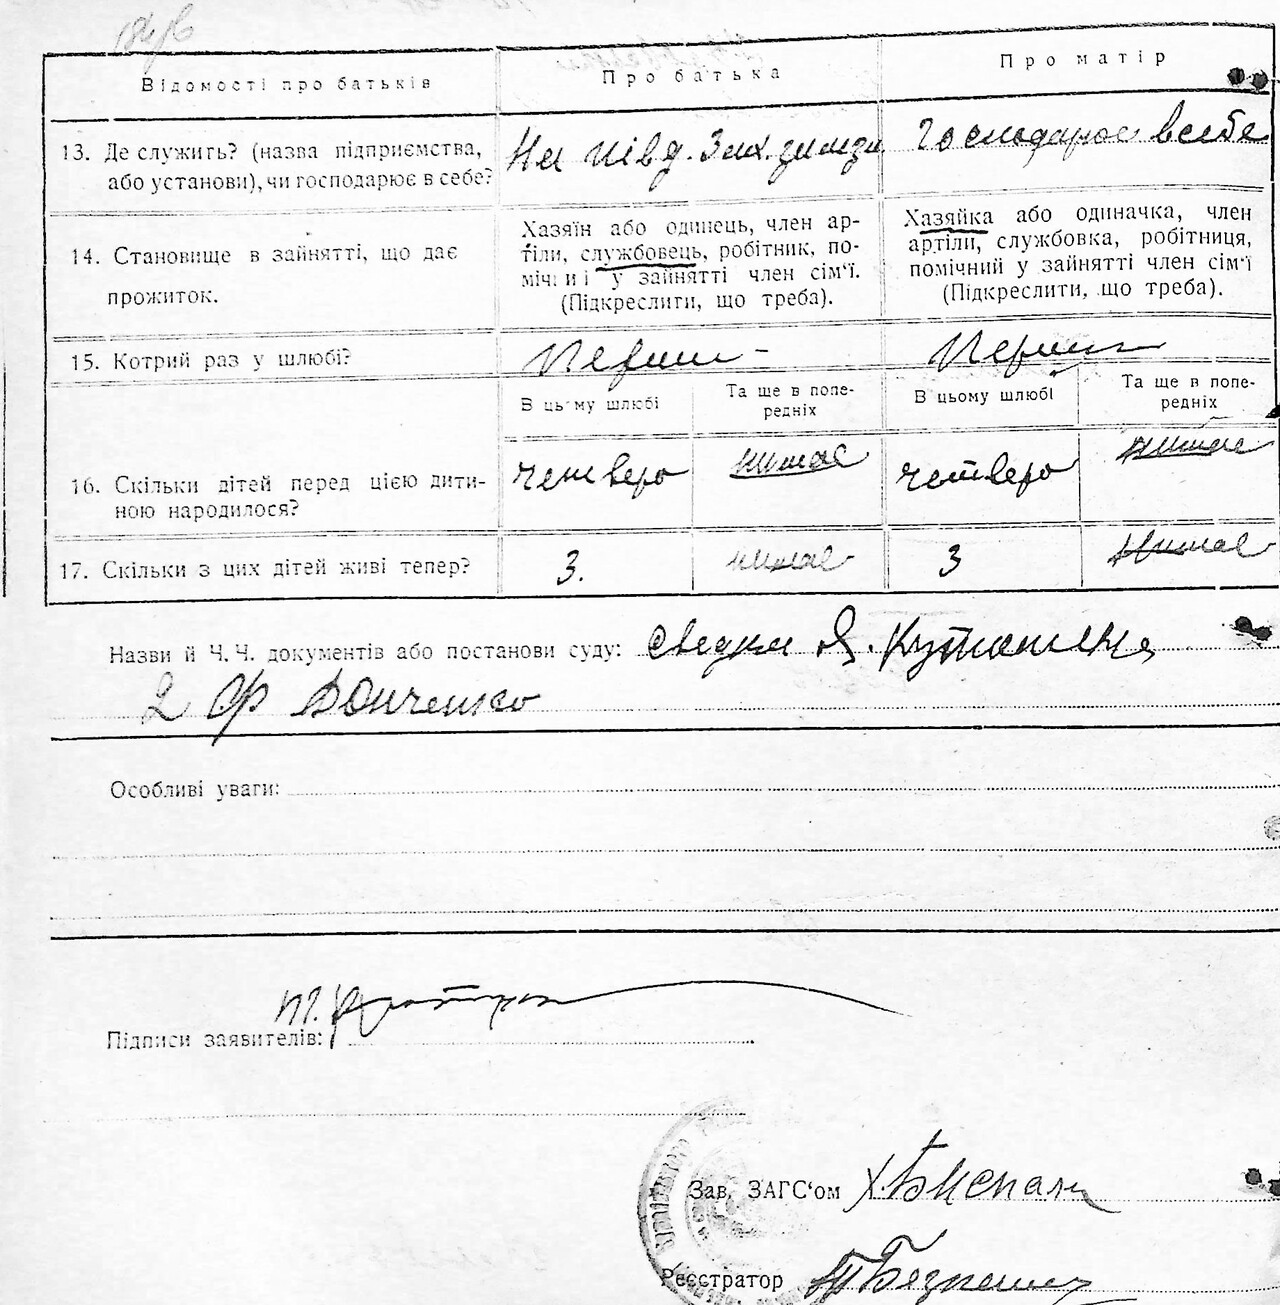 Відомості про батьків
Про батька
Про матір
13. Де служить? (назва підприємства,
або установи), чи господарює в себе?
На Півд. Зах. залізн
Господарює в себе
14. Становище в зайнятті, що дає
прожиток.
Хазяїн або одинець, член ар-
тіли, службовець, робітник, по-
мічний у зайнятті член сім'ї.
(Підкреслити, що треба).
Хазяйка або одиначка, член
артіли, службовка, робітниця,
помічний у зайнятті член сім'ї
(Підкреслити, що треба).
15. Котрий раз у шлюбі?
В цьому шлюбі
Та ще в попе-
редніх
В цьому шлюбі
Та ще в попе-
редніх
16. Скільки дітей перед цією дити-
ною народилося?
четверо
немає
четверо
немає
17. Скільки з цих дітей живі тепер?
3.
немає
3
немає
Назви й Ч. Ч. документів або постанови суду:
2 Ф Донченко
Особливі уваги:
Підписи заявителів:
Зав. ЗАГС'ом
Реєстратор